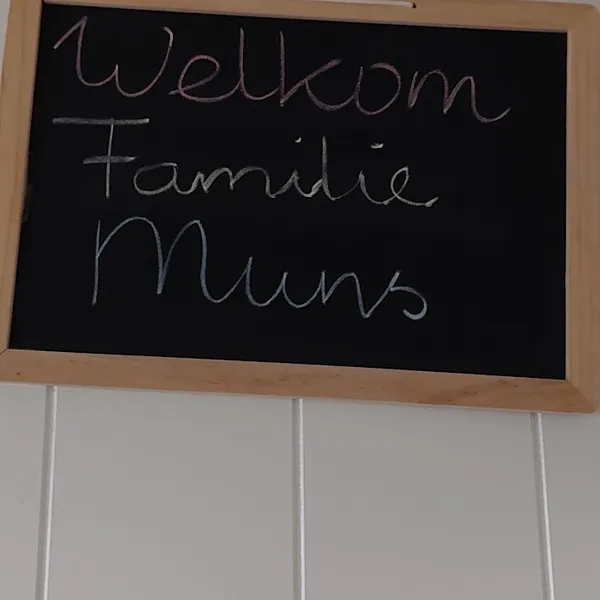 Welkom
Familie
Muns